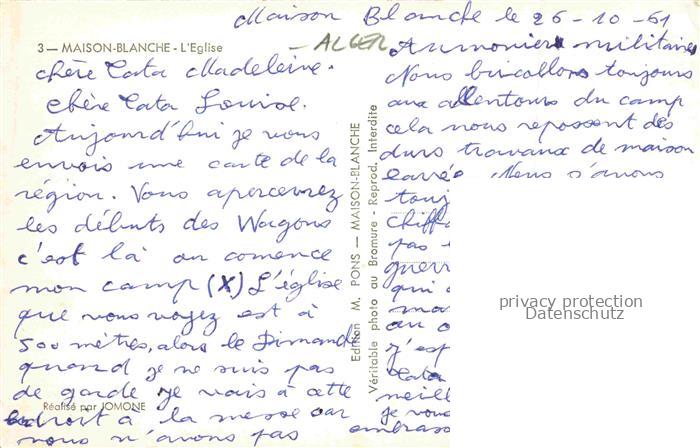 Maison Blanche le 26-10-61
3 — MAISON-BLANCHE - L'Eglise
— ALGER
chère Tata Madeleine.
chère Tata Louise.
Aujourd'hui je vous
envois une carte de la
région. Vous apercevrez
les débuts des Wagons
c'est là ou comence
mon camp (X) L'église
que vous voyez est à
500 mètres, alors le Dimanche
quand je ne suis pas
de garde je vais à cette
endroit à la messe car
nous n'avons pas
Réalisé par JOMONE
Edition M. PONS — MAISON-BLANCHE
Véritable photo au Bromure - Reprod. Interdite
Aumonier militaire
Nous bricollons toujours
aux allentours du camp
cela nous reposent des
durs travaux de maison
carrée. Nous avons
touj
chiff
pas
guerr
qui
ma
au
j'esp
tata
meill
je vous
embrass
privacy protection
Datenschutz